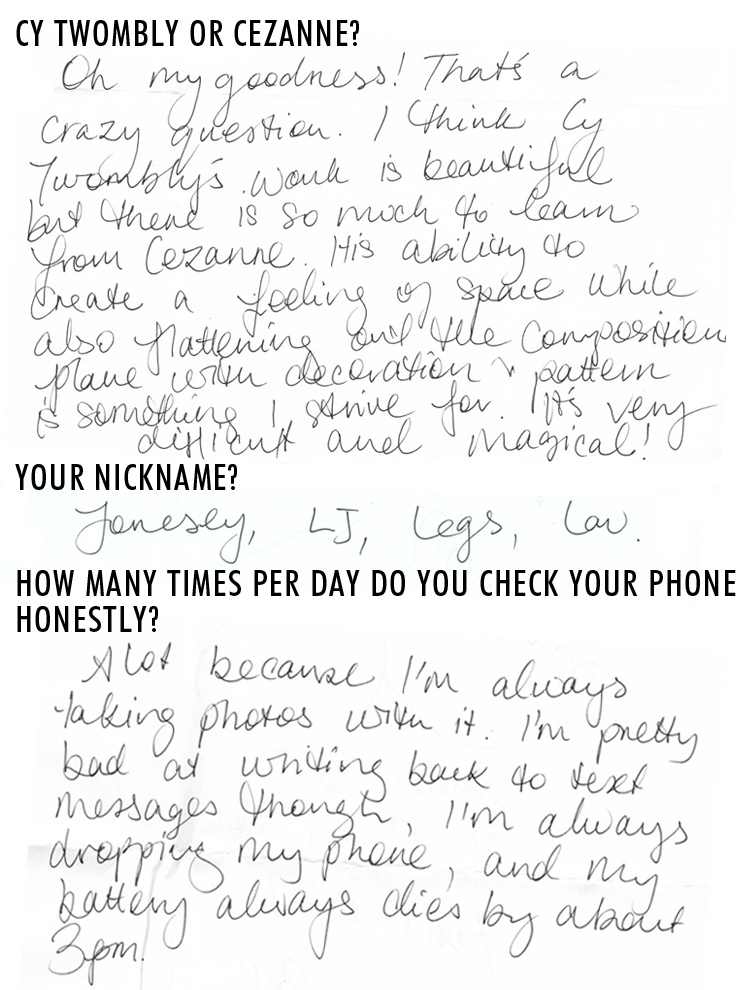 CY TWOMBLY OR CEZANNE?
Oh my goodness! That's a
crazy question. I think Cy
Twombly's work is beautiful
but there is so much to learn
from Cezanne. His ability to
create a feeling of space while
also flattening out the composition
plane with decoration & pattern
is something I strive for. It's very
difficult and magical!
YOUR NICKNAME?
Jonesey, LJ, Legs, Lau.
HOW MANY TIMES PER DAY DO YOU CHECK YOUR PHONE
HONESTLY?
A lot because I'm always
taking photos with it. I'm pretty
bad at writing back to text
messages though, I'm always
dropping my phone, and my
battery always dies by about
3pm.